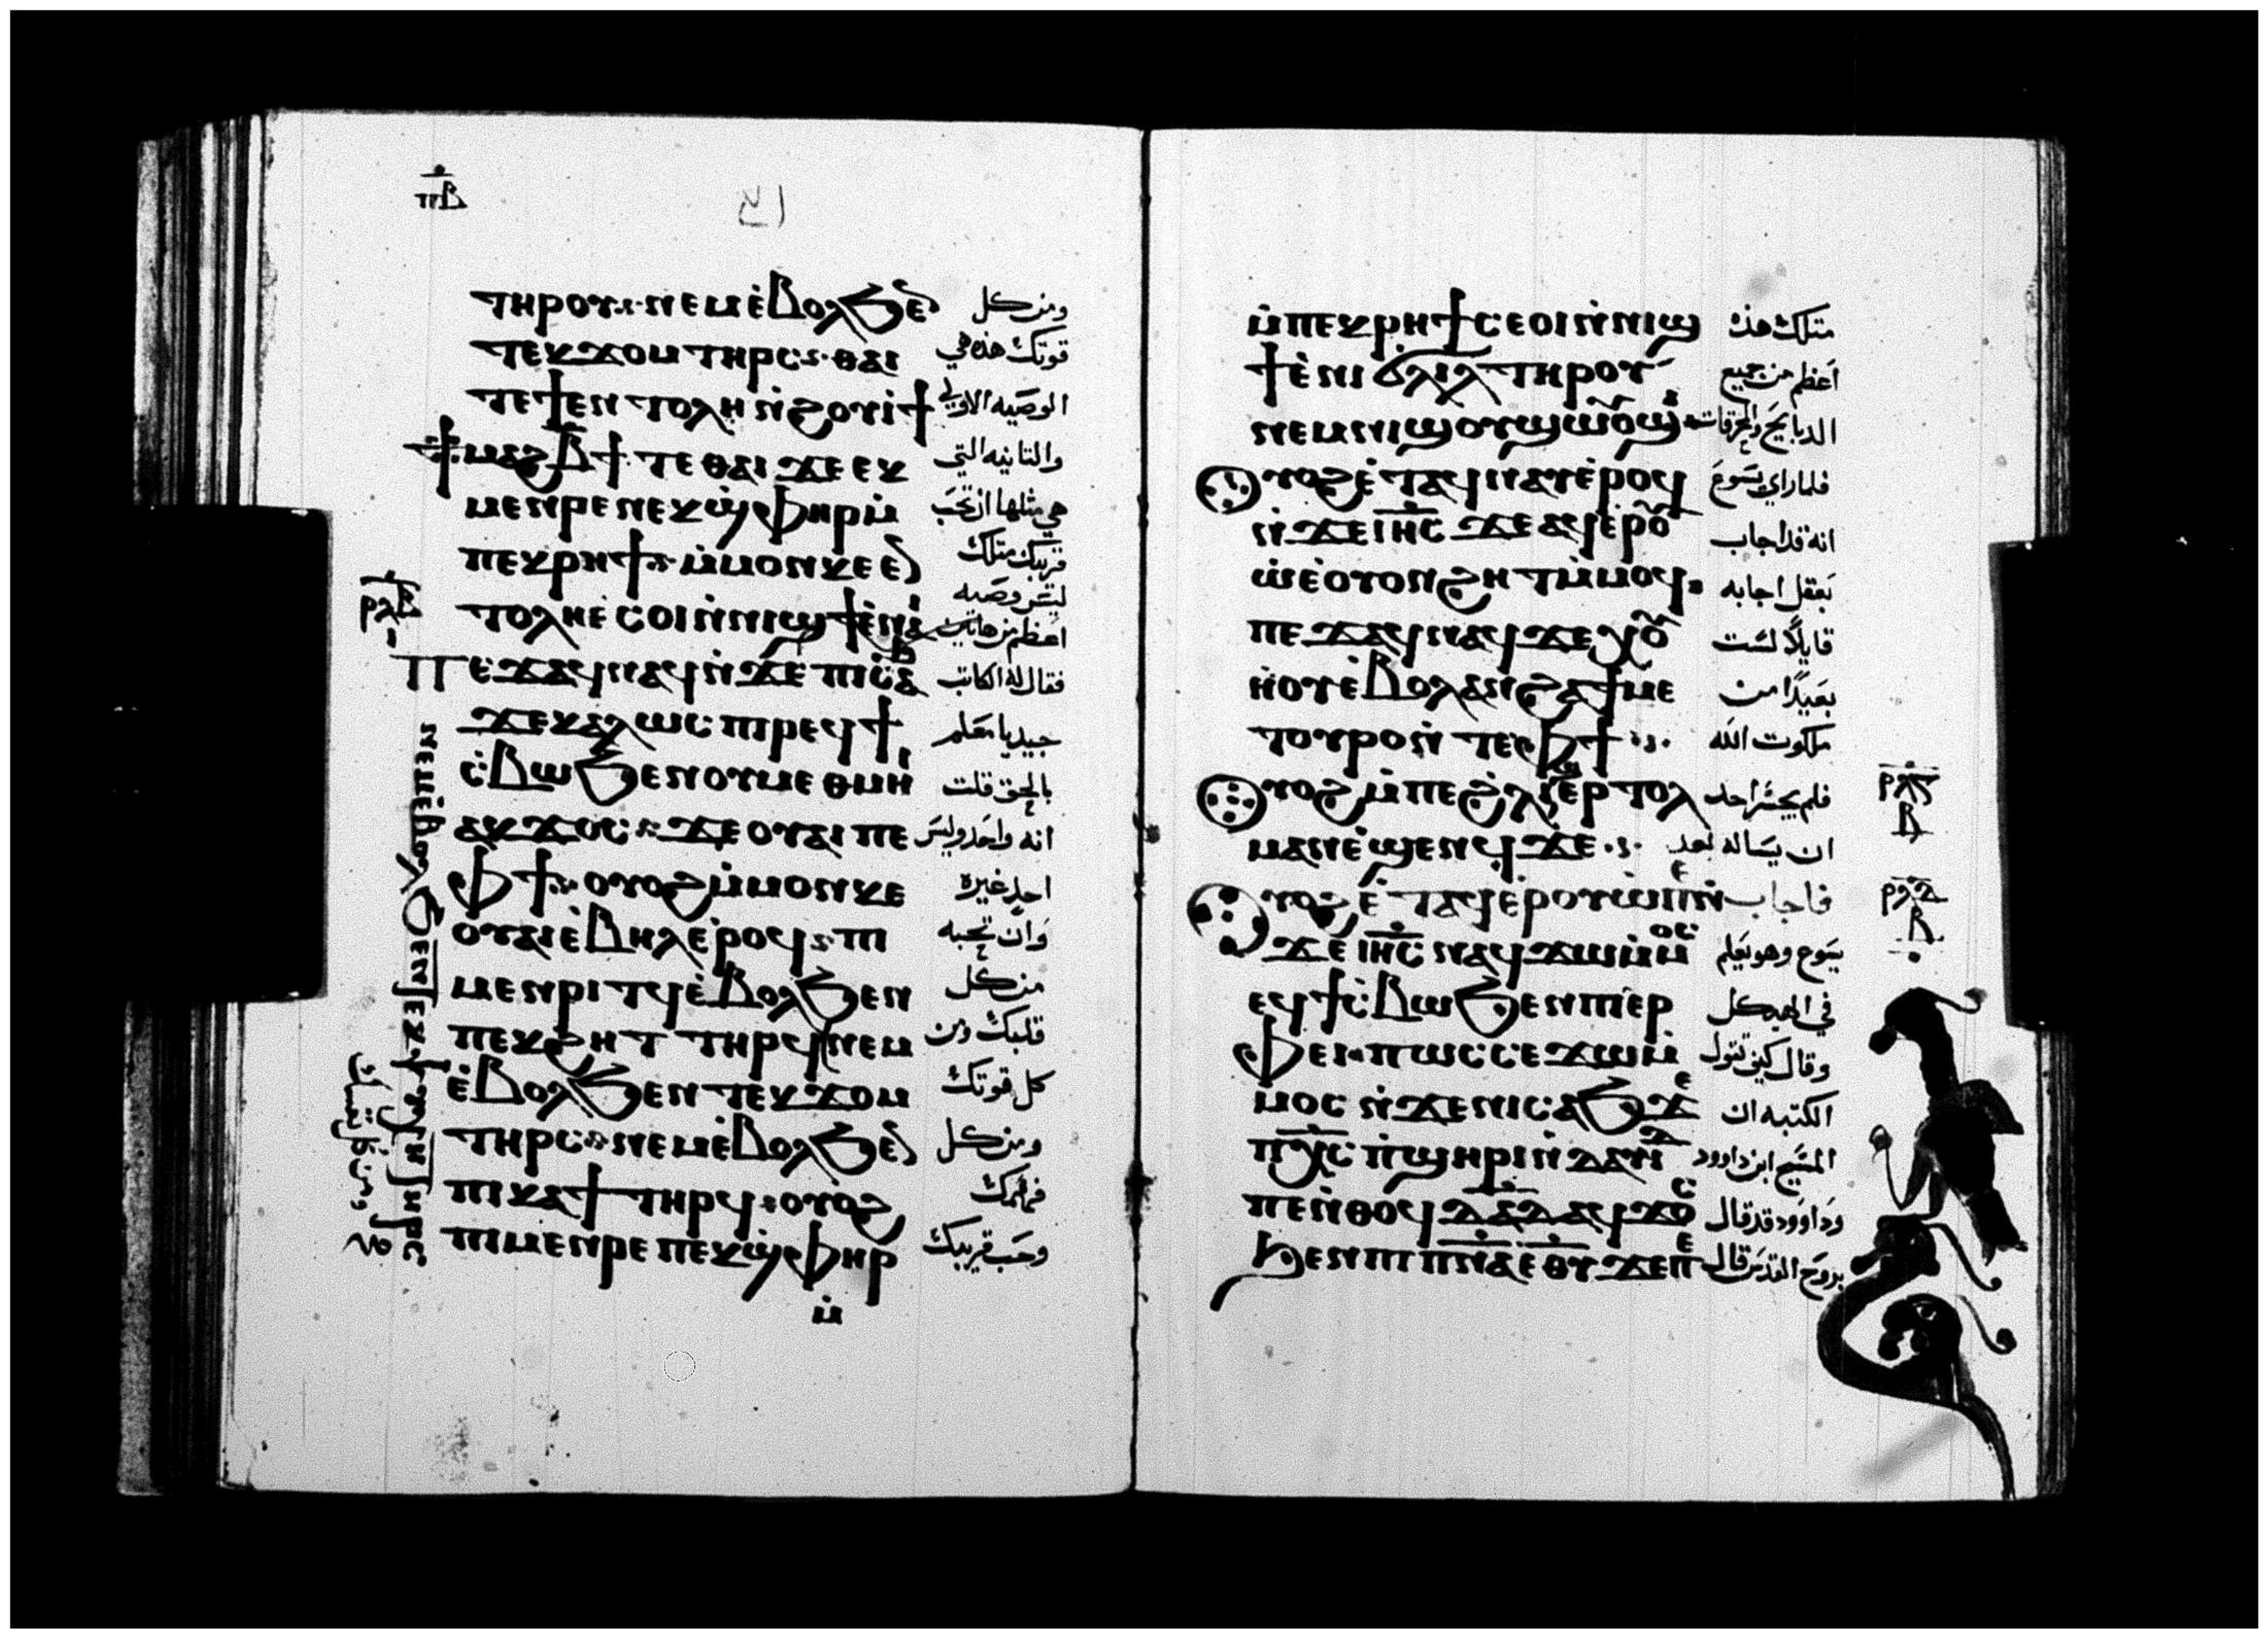 ⲡ̅ⲃ̅
ⲧⲏⲣⲟⲩ ⲛⲉⲙ ⲉ̀ⲃⲟⲗϧⲉ̅
ومن كل
ⲧⲉⲕϫⲟⲙ ⲧⲏⲣⲥ ⲑⲁⲓ
قوتك هذه هي
ⲧⲉ ϯⲉⲛⲧⲟⲗⲏ ⲛ̀ϩⲟⲩⲓ̀ϯ
الوصيه الاولي
ϯⲙⲁϩⲃ̅ϯ ⲧⲉ ⲑⲁⲓ ϫⲉ ⲉⲕ
والتانيه التي
ⲙⲉⲛⲣⲉ ⲡⲉⲕϣ̀ⲫⲏⲣ ⲙ̀
هي مثلها ان تحب
ⲡⲉⲕⲣⲏϯ ⲙ̀ⲙⲟⲛ ⲕⲉ ⲉ̅
قريبك متلك
ⲧⲟⲗⲏ ⲉ̀ⲥⲟⲓ ⲛ̀ⲛⲓϣϯ ⲉ̀ⲛⲁⲓ
ليس وصيه
اعظم من هاتين
ⲣⲗⲃ
ⲡⲉϫⲁϥ ⲛⲁϥ ⲛ̀ϫⲉ ⲡⲓⲥⲁϧ
فقال له الكاتب
ϫⲉ ⲕⲁⲗⲱⲥ ⲡⲓⲣⲉϥϯ
جيد يا معلم
ⲥ̀ⲃⲱ ϧⲉⲛ ⲟⲩⲙⲉⲑⲙⲏⲓ
بالحق قلت
ⲁⲕϫⲟⲥ ϫⲉ ⲟⲩⲁⲓ ⲡⲉ
انه واحد وليس
ⲫϯ ⲟⲩⲟϩ ⲙ̀ⲙⲟⲛ ⲕⲉ
احد غيره
ⲟⲩⲁⲓ ⲉ̀ⲃⲏⲗ ⲉ̀ⲣⲟϥ ⲡⲓ
وان تحبه
ⲙⲉⲛⲣⲓⲧϥ ⲉ̀ⲃⲟⲗϧⲉⲛ
من كل
ⲡⲉⲕϩⲏⲧ ⲧⲏⲣϥ ⲛⲉⲙ
قلبك ومن
ⲉ̀ⲃⲟⲗϧⲉⲛ ⲧⲉⲕϫⲟⲙ
كل قوتك
ⲧⲏⲣⲥ ⲛⲉⲙ ⲉ̀ⲃⲟⲗϧⲉ̅
ومن كل
ⲡⲓⲕⲁϯ ⲧⲏⲣϥ ⲟⲩⲟϩ
فهمك
ⲡⲓⲙⲉⲛⲣⲉ ⲡⲉⲕϣ̀ⲫⲏⲣ
وحب قريبك
ⲙ̀
ⲛⲉⲙ ⲉ̀ⲃⲟⲗϧⲉⲛ ⲧⲉⲕⲯⲩⲭⲏ ⲧⲏⲣⲥ
ومن كل نفسك
ⲙ̀ⲡⲉⲕⲣⲏϯ ⲥⲉⲟⲓ ⲛ̀ⲛⲓϣ
متلك هذه
ϯ ⲉ̀ⲛⲓϭⲗⲓⲗ ⲧⲏⲣⲟⲩ
اعظم من جميع
ⲛⲉⲙ ⲛⲓϣⲟⲩϣⲱⲟⲩϣⲓ
الدبايح والمحرقات
ⲟⲩⲟϩ ⲉ̀ⲧⲁϥⲛⲁⲩ ⲉ̀ⲣⲟϥ
فلما راي يسوع
ⲛ̀ϫⲉ ⲓⲏ̅ⲥ ϫⲉ ⲁϥⲉ̀ⲣⲟⲩ
انه قد اجاب
ⲱ̀ ⲉ̀ⲟⲩⲟⲛ ϩⲏⲧ ⲙ̀ⲙⲟϥ
بعقل اجابه
ⲡⲉϫⲁϥ ⲛⲁϥ ϫⲉ ⲭⲟⲩ
قايلا لست
ⲏ̀ⲟⲩ ⲉ̀ⲃⲟⲗ ⲁⲛ ϩⲁ ϯⲙⲉ
بعيدا من
ⲧⲟⲩⲣⲟ ⲛ̀ⲧⲉ ⲫϯ
ملكوت الله
ⲟⲩⲟϩ ⲙ̀ⲡⲉ ϩ̀ⲗⲓ ⲉⲣⲧⲟⲗ
فلم يجسر احد
ⲣⲗⲅ
ⲃ
ⲙⲁⲛ ⲉ̀ϣⲉⲛϥ ϫⲉ
ان يساله بعد
ⲟⲩⲟϩ ⲉ̀ⲧⲁϥⲉ̀ⲣⲟⲩⲱ̀ ⲛ̀
فاجاب
ⲣⲗⲇ
ⲃ
ϫⲉ ⲓⲏ̅ⲥ ⲛⲁϥϫⲱ ⲙ̀ⲙⲟⲥ
يسوع وهو يعلم
ⲉϥϯⲥ̀ⲃⲱ ϧⲉⲛ ⲡⲓⲉⲣ
في الهيكل
ⲫⲉⲓ ⲡⲱⲥ ⲥⲉϫⲱ ⲙ̀
وقال كيف تقول
ⲙⲟⲥ ⲛ̀ϫⲉ ⲛⲓⲥⲁϧ ϫⲉ
الكتبه ان
ⲡⲭ̅ⲥ ⲡ̀ϣⲏⲣⲓ ⲛ̀ⲇⲁⲇ ⲡⲉ
المسيح ابن داوود
ⲛ̀ⲑⲟϥ ⲇⲁⲇ ⲁϥϫⲟⲥ
وداوود قد قال
ϧⲉⲛ ⲡⲓⲡⲛ̅ⲁ ⲉⲑⲩ ϫⲉ ⲡⲉ
بروح القدس قال